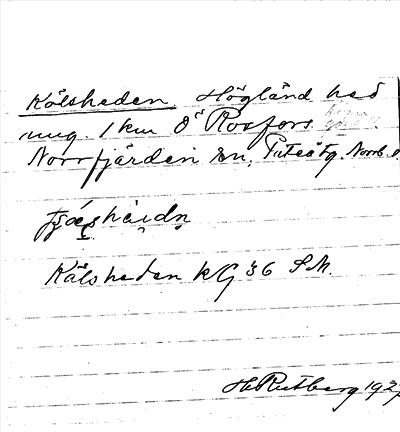 Kälsheden Högländ hed
ung. 1 km Ö Rosfors
Norrfjärden sn, Piteå tg. Norrb.
Kälsheden kG 36 SM.
H. Rutberg